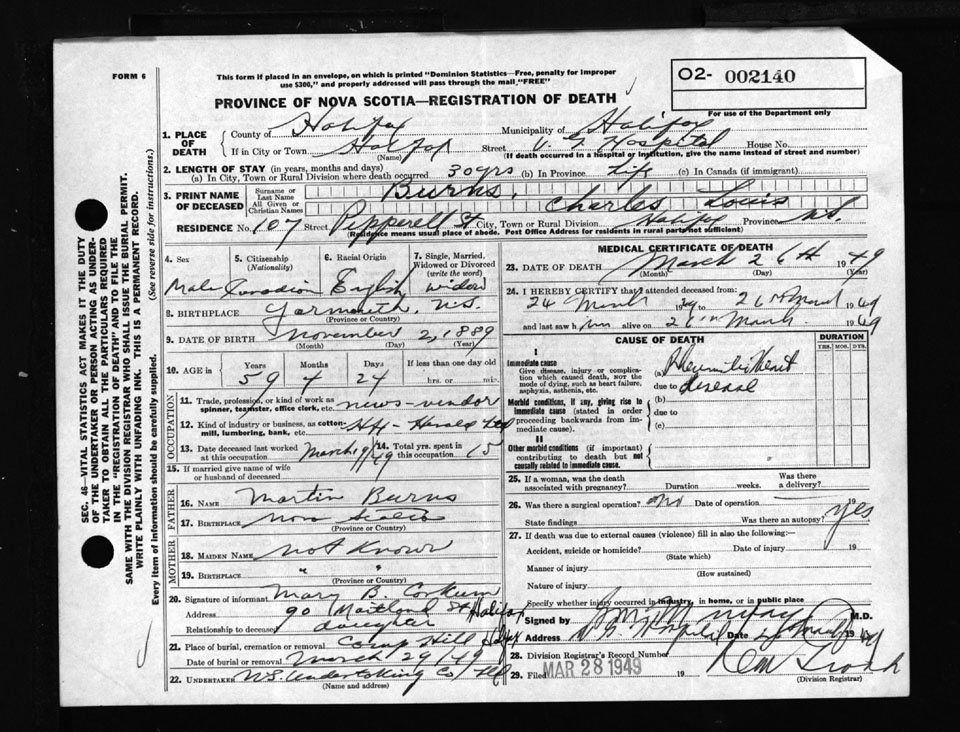 FORM 6
This form if placed in an envelope, on which is printed "Dominion Statistics—Free, penalty for improper
use $300," and properly addressed will pass through the mail "FREE"
O2- 002140
For use of the Department only
PROVINCE OF NOVA SCOTIA—REGISTRATION OF DEATH
SEC. 46—VITAL STATISTICS ACT MAKES IT THE DUTY
OF THE UNDERTAKER OR PERSON ACTING AS UNDER-
TAKER TO OBTAIN ALL THE PARTICULARS REQUIRED
IN THE "REGISTRATION OF DEATH" AND TO FILE THE
SAME WITH THE DIVISION REGISTRAR WHO SHALL ISSUE THE BURIAL PERMIT.
WRITE PLAINLY WITH UNFADING INK. THIS IS A PERMANENT RECORD.
Every item of information should be carefully supplied. (See reverse side for instructions.)
1. PLACE OF DEATH
County of Halifax Municipality of Halifax
If in City or Town Halifax Street V. G. Hospital House No.
(Name) (If death occurred in a hospital or institution, give the name instead of street and number)
2. LENGTH OF STAY (in years, months and days)
(a) In City, Town or Rural Division where death occurred 30 yrs (b) In Province Life (c) In Canada (if immigrant)
3. PRINT NAME OF DECEASED
Surname or Last Name Burns,
All Given or Christian Names Charles Louis
RESIDENCE No. 107 Street Pepperell St City, Town or Rural Division Halifax Province N.S
(Residence means usual place of abode. Post Office Address for residents in rural parts not sufficient)
4. Sex
Male
5. Citizenship (Nationality)
Canadian
6. Racial Origin
English
7. Single, Married, Widowed or Divorced (write the word)
widow
8. BIRTHPLACE Yarmouth, N.S.
(Province or Country)
9. DATE OF BIRTH November 2, 1889
(Month) (Day) (Year)
10. AGE in Years Months Days If less than one day old
59 4 24 hrs. or min.
OCCUPATION
11. Trade, profession, or kind of work as
spinner, teamster, office clerk, etc. news-vendor
12. Kind of industry or business, as cotton-
mill, lumbering, bank, etc. Hfx-Herald Ltd
13. Date deceased last worked at this occupation March
14. Total yrs. spent in this occupation 15
15. If married give name of wife
or husband of deceased
FATHER
16. NAME Martin Burns
17. BIRTHPLACE Nova Scotia
(Province or Country)
MOTHER
18. MAIDEN NAME not known
19. BIRTHPLACE " "
(Province or Country)
20. Signature of informant Mary B. Corkum
Address 90 Maitland St Halifax
Relationship to deceased daughter
21. Place of burial, cremation or removal Camp Hill Halifax
Date of burial or removal March 29/49
22. UNDERTAKER N.S. Undertaking Co Ltd
(Name and address)
MEDICAL CERTIFICATE OF DEATH
23. DATE OF DEATH March 26th 1949
(Month) (Day) (Year)
24. I HEREBY CERTIFY that I attended deceased from:
24 March 1949 to 26th March 1949
and last saw him alive on 26th March 1949
CAUSE OF DEATH
DURATION
YRS. MOS. DYS.
I
Immediate cause
Give disease, injury or complica-
tion which caused death, not the
mode of dying, such as heart failure,
asphyxia, asthenia, etc.
(a) Rheumatic Heart
due to disease
Morbid conditions, if any, giving rise to
immediate cause (stated in order
proceeding backwards from im-
mediate cause).
(b)
due to
(c)
II
Other morbid conditions (if important)
contributing to death but not
causally related to immediate cause.
25. If a woman, was the death associated with pregnancy? Duration weeks. Was there a delivery?
26. Was there a surgical operation? no Date of operation 19
State findings Was there an autopsy? yes
27. If death was due to external causes (violence) fill in also the following:
Accident, suicide or homicide? Date of injury 19
(State which)
Manner of injury
(How sustained)
Nature of injury
Specify whether injury occurred in industry, in home, or in public place
Signed by M.D.
Address V. G. Hospital Date 1949
28. Division Registrar's Record Number
29. Filed MAR 28 1949 19
(Division Registrar)